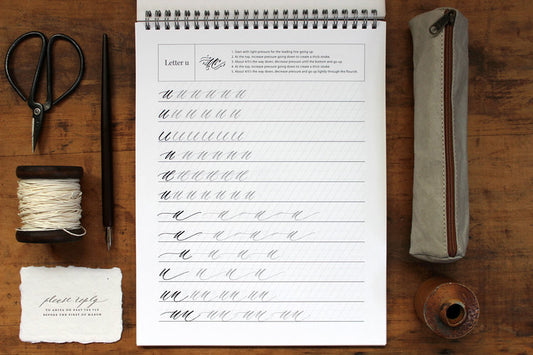 Letter u
1. Start with light pressure for the leading line going up.
2. At the top, increase pressure going down to create a thick stroke.
3. About 4/5's the way down, decrease pressure until the bottom and go up
4. At the top, increase pressure going down to create a thick stroke.
5. About 4/5's the way down, decrease pressure and go up lightly through the flourish.
u u u u u u
u u u u u u
u u u u u u u u
u u u u u u
u u u u u u
u u u u u u
u u u u u
u u u u u
u u u u
u u u u
uu uu uu uu
uu uu uu uu uu
please reply
BEFORE THE FIRST OF MARCH